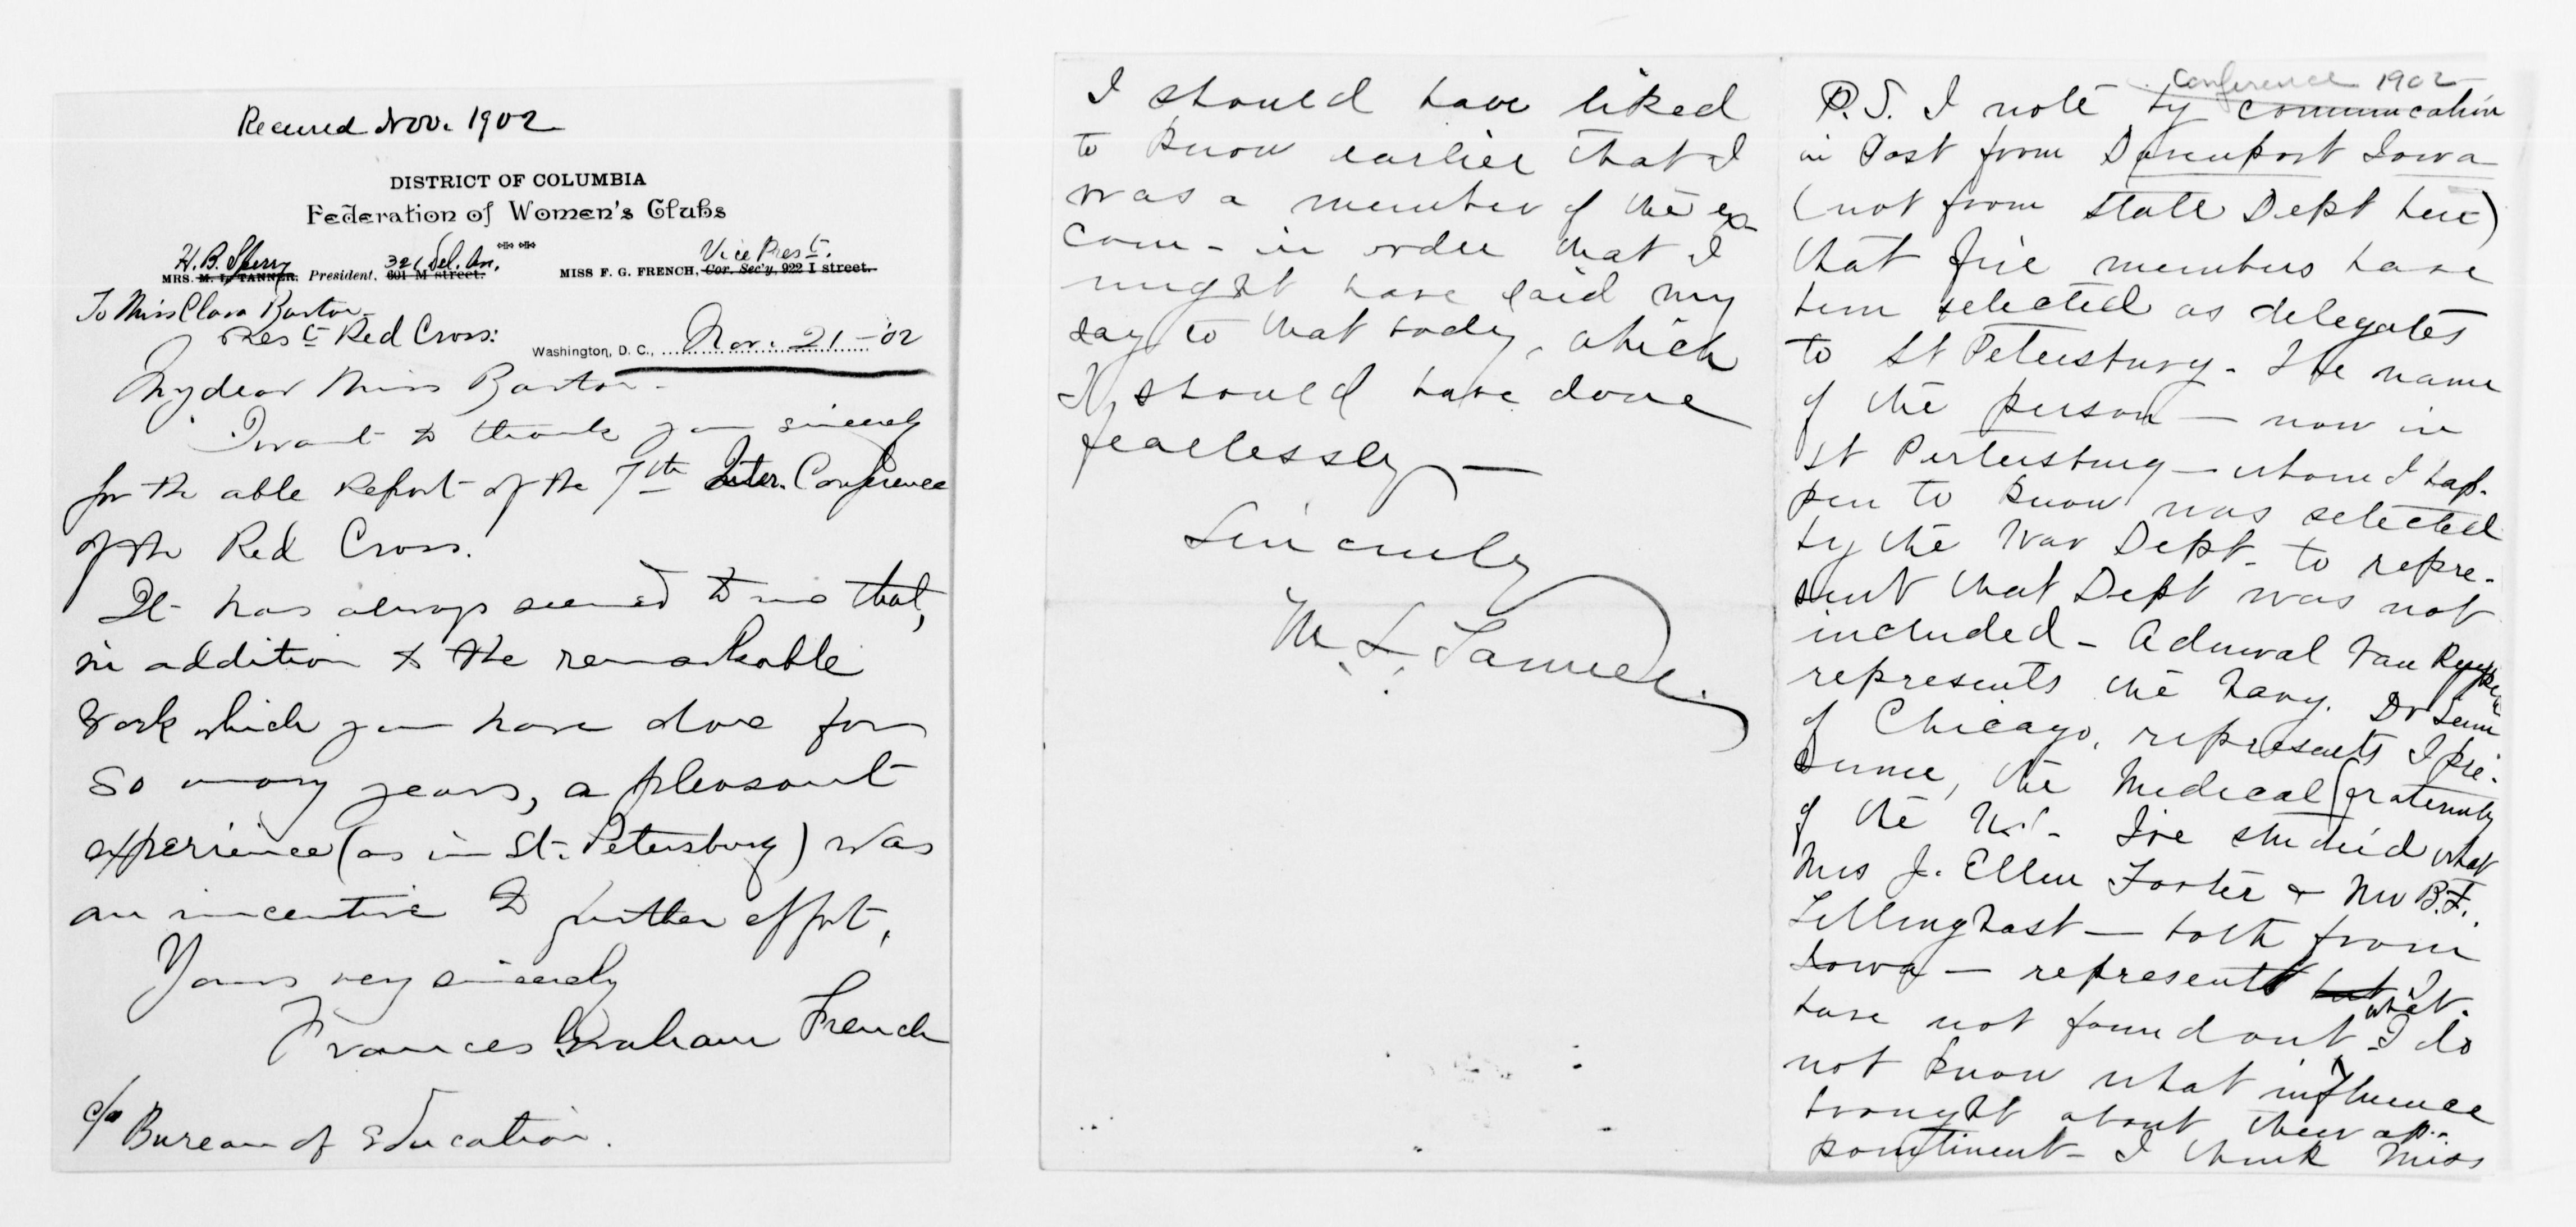 Received Nov. 1902
DISTRICT OF COLUMBIA
Federation of Women's Clubs
H. B. Sperry 321 Del. Av. Vice Prest.
MRS. M. L. TANNER, President, 601 M street. MISS F. G. FRENCH, Cor. Sec'y, 922 I street.
To Miss Clara Barton
Prest Red Cross:
Washington, D. C., Nov. 21 - '02
My dear Miss Barton -
I want to thank you sincerely
for the able report of the 7th Inter. Conference
of the Red Cross.
It has always seemed to me that,
in addition to the remarkable
work which you have done for
so many years, a pleasant
experience (as in St. Petersburg) was
an incentive to further effort,
Yours very sincerely
Frances Graham French
c/o Bureau of Education.
I should have liked
to know earlier that I
was a member of the ex
com - in order that I
might have said my
say to that body, which
I should have done
fearlessly -
Sincerely
M. L. Tanner.
Conference 1902
P.S. I note by communication
in Post from Davenport Iowa
(not from State Dept here)
that five members have
been selected as delegates
to St Petersburg - The name
of the person - now in
St Pertersburg - whom I hap-
pen to know was selected
by the War Dept - to repre-
sent that Dept was not
included - Admiral Van Reypen
represents the Navy. Dr Senn
of Chicago, represents I pre-
sume, the Medical fraternity
of the U.S. - I've studied what
Mrs J. Ellen Foster & Mr B.F.
Tillinghast - both from
Iowa - represent but I
have not found out what. I do
not know what influence
brought about their ap-
pointment - I think Miss